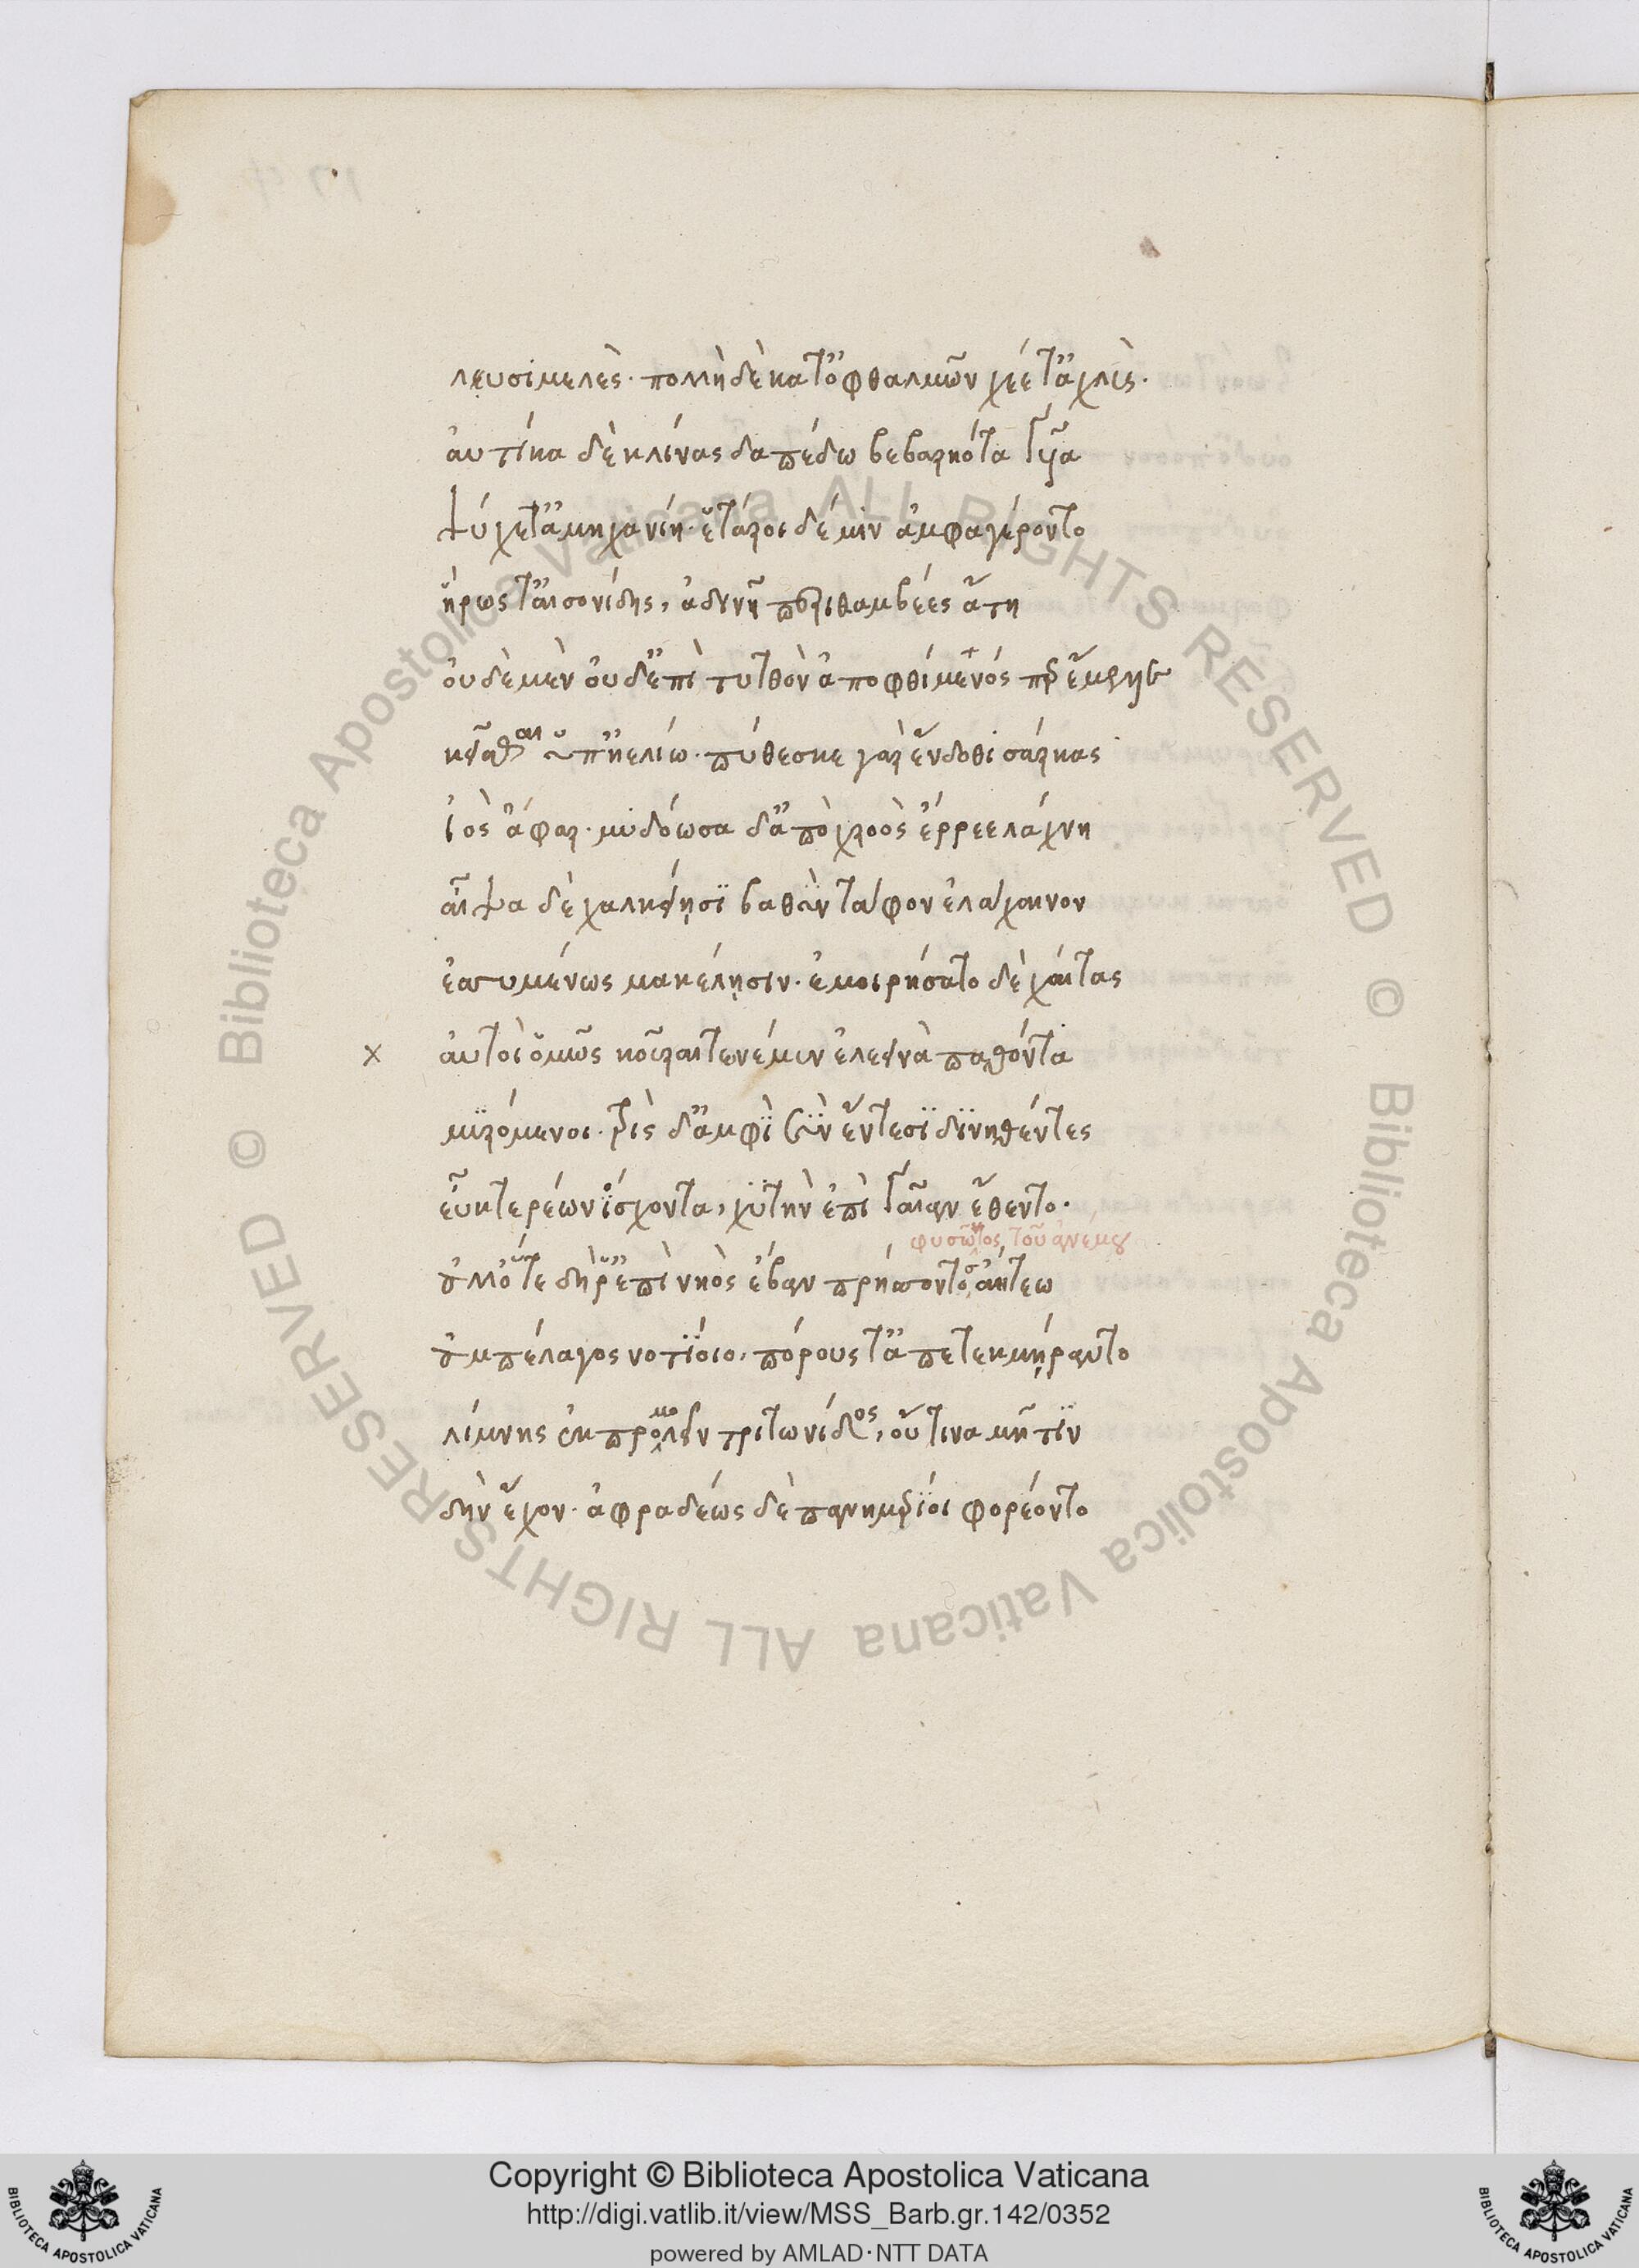 λευσιμελὲς· πολλὴ δὲ κατ' ὀφθαλμῶν χέετ' ἀχλὺς·
αὐτίκα δὲ κλίνας δαπέδω βεβαρηότα γυῖα
ψύχετ' ἀμηχανίη· ἕταροι δέ μιν ἀμφαγέροντο
ἥρως τ' αἰσονίδης, ἀδινῆ περιθαμβέες ἄτη
οὐδὲ μὲν οὐδ' ἐπὶ τυτθὸν ἀποφθίμενός περ ἔμελλε
κεῖσθαι ὑπ' ἠελίω· πύθεσκε γὰρ ἔνδοθι σάρκας
ἰὸς ἄφαρ· μυδόωσα δ' ἀπὸ χροὸς ἔρρεε λάχνη
αἶψα δὲ χαλκείησι βαθὺν τάφον ἐλάχαινον
ἐσσυμένως μακέλησιν· ἐμοιρήσατο δὲ χαίτας
× αὐτοὶ ὁμῶς κοῦραί τε νέκυν ἐλεεινὰ παθόντα
μυρόμενοι· τρὶς δ' ἀμφὶ σὺν ἔντεσι δινηθέντες
εὖ κτερέων ἴσχοντα, χυτὴν ἐπὶ γαῖαν ἔθεντο·
φυσῶντος τοῦ ἀνέμου
ἀλλ' ὅτε δή ῥ' ἐπὶ νηὸς ἔβαν πρήσοντος ἀήτεω
ἀμπέλαγος νοτίοιο, πόρους τ' ἀπετεκμήραντο
λίμνης ἐκπρομολεῖν τριτωνίδος, οὔ τινα μῆτιν
δὴν ἔχον· ἀφραδέως δὲ πανημέριοι φορέοντο
Copyright © Biblioteca Apostolica Vaticana
http://digi.vatlib.it/view/MSS_Barb.gr.142/0352
powered by AMLAD·NTT DATA